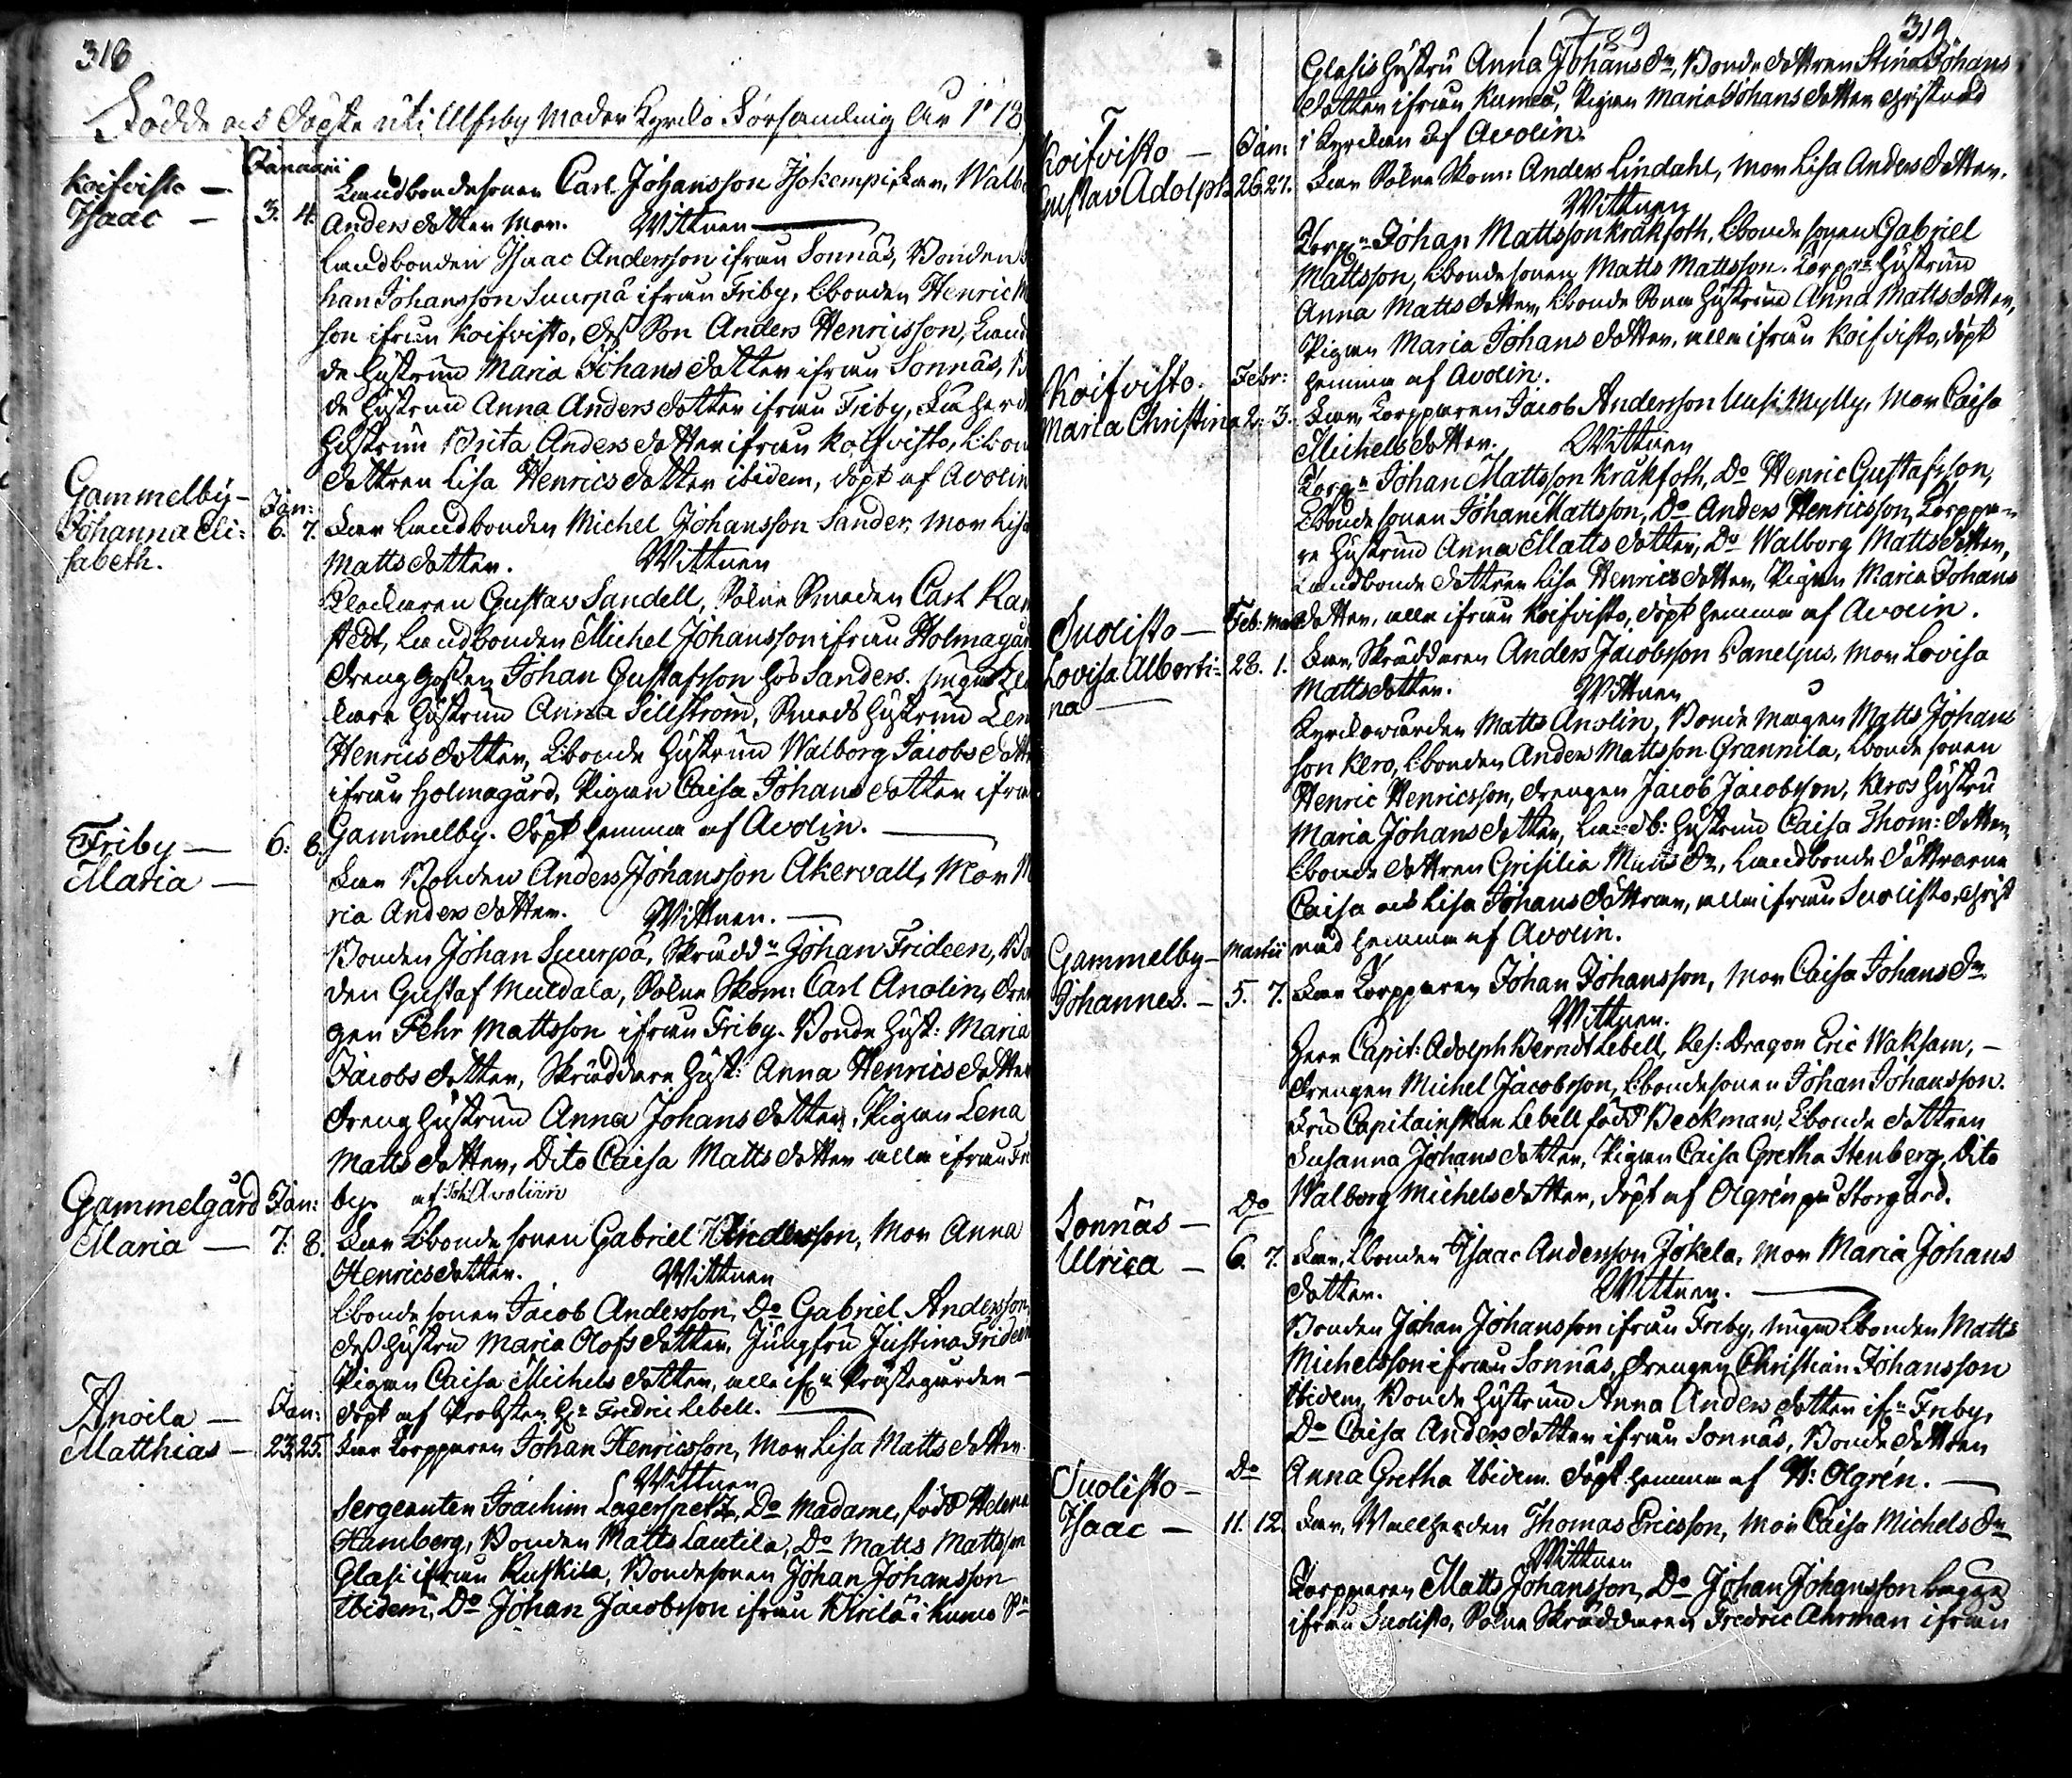 318
Födde och döpte uti Ulfsby Moder Kyrckio Församling År 178
Januarii
Koifvisto —
Isaac — 3. 4.
Landbondesonen Carl Johansson Isokempi, Far, Walb
Anders dotter Mor. Wittnen
Landbonden Isaac Andersson ifrån Sonnäs, Bonden
han Johansson Suurpä ifrån Friby, Lbonden Henric M
son ifrån Koifvisto, dess Son Anders Henricsson, Land
de Hustrun Maria Johans dotter ifrån Sonnäs, B
de Hustrun Anna Anders dotter ifrån Friby,
Hustrun Brita Anders dotter ifrån Koifvisto, Lbon
dottren Lisa Henrics dotter ibidem, döpt af Avolin
Gammelby —
Johanna Eli:
sabeth.
Jan:
6. 7.
Far Landbonden Michel Johansson Sander, Mor Lisa
Matts dotter. Wittnen
Klockaren Gustav Sandell, Sokne Smeden Carl Ran
stedt, Landbonden Michel Johansson ifrån Holmagår
Dreng Gossen Johan Gustafsson hos Sanders.
kare Hustrun Anna Sillström, Smeds Hustrun Len
Henrics dotter, Lbonde Hustrun Walborg Jacobs dott
ifrån Holmagård, Pigan Caisa Johans dotter ifrån
Gammelby. döpt hemma af Avolin.
Friby —
Maria —
6. 8.
Far Bonden Anders Johansson Åkervall, Mor M
ria Anders dotter. Wittnen.
Bonden Johan Suurpä, Skrädd:n Johan Frideen, Bo
den Gustaf Muldala, Sokne Skom: Carl Anolin, Dren
gen Pehr Mattsson ifrån Friby. Bonde Hust: Maria
Jacobs dotter, Skräddare Hust: Anna Henrics dotter
Dreng Hustrun Anna Johans dotter, Pigan Lena
Matts dotter, Dito Caisa Matts dotter alla ifrån Fri
by. af Joh: Avolinn
Gammelgård
Maria —
Jan:
7. 8.
Far Lbonde sonen Gabriel Andersson, Mor Anna
Henrics dotter. Wittnen
Lbonde sonen Jacob Andersson, Do Gabriel Andersson,
dess Hustru Maria Olofs dotter, Jungfru Justina Frideen
Pigan Caisa Michels dotter, alla ifr:n Prästegården —
döpt af Probsten H:r Fredric Lebell.
Anoila —
Matthias —
Jan:
23. 25.
Far Torpparen Johan Henricsson, Mor Lisa Matts dotter.
Wittnen
Sergeanten Joachim Lagerspetz, Do Madame, född Helena
Hamberg, Bonden Matts Lautila, Do Matts Mattsson
Glasi ifrån Ruskila, Bondesonen Johan Johansson
Ibidem, Do Johan Jacobsson ifrån Krilä i Kumo S:n
1789
319
Glasis Hustru Anna Johans dr, Bonde dottren Stina Johans
dotter ifrån Kumo, Pigan Maria Johans dotter christnad
i kyrckan af Avolin.
Koifvisto —
Gustav Adolph
Jan:
26. 27.
Far Sokne Skom: Anders Lindahl, Mor Lisa Anders dotter.
Wittnen
Torp:n Johan Mattsson Kråkfoth, Lbonde sonen Gabriel
Mattsson, Lbonde sonen Matts Mattsson. Torp:re Hustrun
Anna Matts dotter, Lbonde Sons Hustrun Anna Matts dotter,
Pigan Maria Johans dotter, alla ifrån Koifvisto, döpt
hemma af Avolin.
Koifvisto.
Maria Christina
Febr:
2. 3.
Far, Torpparen Jacob Andersson Uusi Mylly, Mor Caisa
Michels dotter. Wittnen
Torp:n Johan Mattsson Kråkfoth, Do Henric Gustafsson,
Lbonde sonen Johan Mattsson, Do Anders Henricsson, Torppa-
re Hustrun Anna Matts dotter, Do Walborg Matts dotter,
Landbonde dottren Lisa Henrics dotter, Pigan Maria Johans
dotter, alla ifrån Koifvisto, döpt hemma af Avolin.
Suolisto —
Lovisa Alberti:
na —
Feb: Mart
28. 1.
Far, Skräddaren Anders Jacobsson Paneljus, Mor Lovisa
Matts dotter. Wittnen
Kyrckovärden Matts Anolin, Bonde Mågen Matts Johans
son Kero, Lbonden Anders Mattsson Grannila, Lbonde sonen
Henric Henricsson, Drengen Jacob Jacobsson, Keros Hustru
Maria Johans dotter, Landb: Hustrun Caisa Thom: dotter,
Lbonde dottren Grisilia Matts dr, Landbonde döttrarne
Caisa och Lisa Johans döttrar, alla ifrån Suolisto, christ
nad hemma af Avolin.
Gammelby —
Johannes. —
Martii
5. 7.
Far Torpparen Johan Johansson, Mor Caisa Johans dr
Wittnen.
Herr Capit: Adolph Berndt Lebell, Res: Dragon Eric Waksam, —
Drengen Michel Jacobsson, Lbondesonen Johan Johansson.
Fru Capitainskan Lebell född Beckman, Lbonde dottren
Susanna Johans dotter, Pigan Caisa Gretha Stenberg, Dito
Walborg Michels dotter, döpt af Olgrén på Storgård.
Sonnäs —
Ulrica —
Do
6. 7.
Far, Lbonden Isaac Andersson Jokela, Mor Maria Johans
dotter. Wittnen.
Bonden Johan Johansson ifrån Friby, Lbonden Matts
Michelsson ifrån Sonnäs, Drengen Christian Johansson
Ibidem, Bonde Hustrun Anna Anders dotter ifr:n Friby,
Do Caisa Anders dotter ifrån Sonnäs, Bonde dottren
Anna Gretha Ibidem. döpt hemma af Olgrén.
Suolisto —
Isaac —
Do
11. 12.
Far, Wallherden Thomas Ericsson, Mor Caisa Michels dr
Wittnen
Torpparen Matts Johansson, Do Johan Johansson bägge
ifrån Suolisto, Sokne Skräddaren Fredric Ahrman ifrån